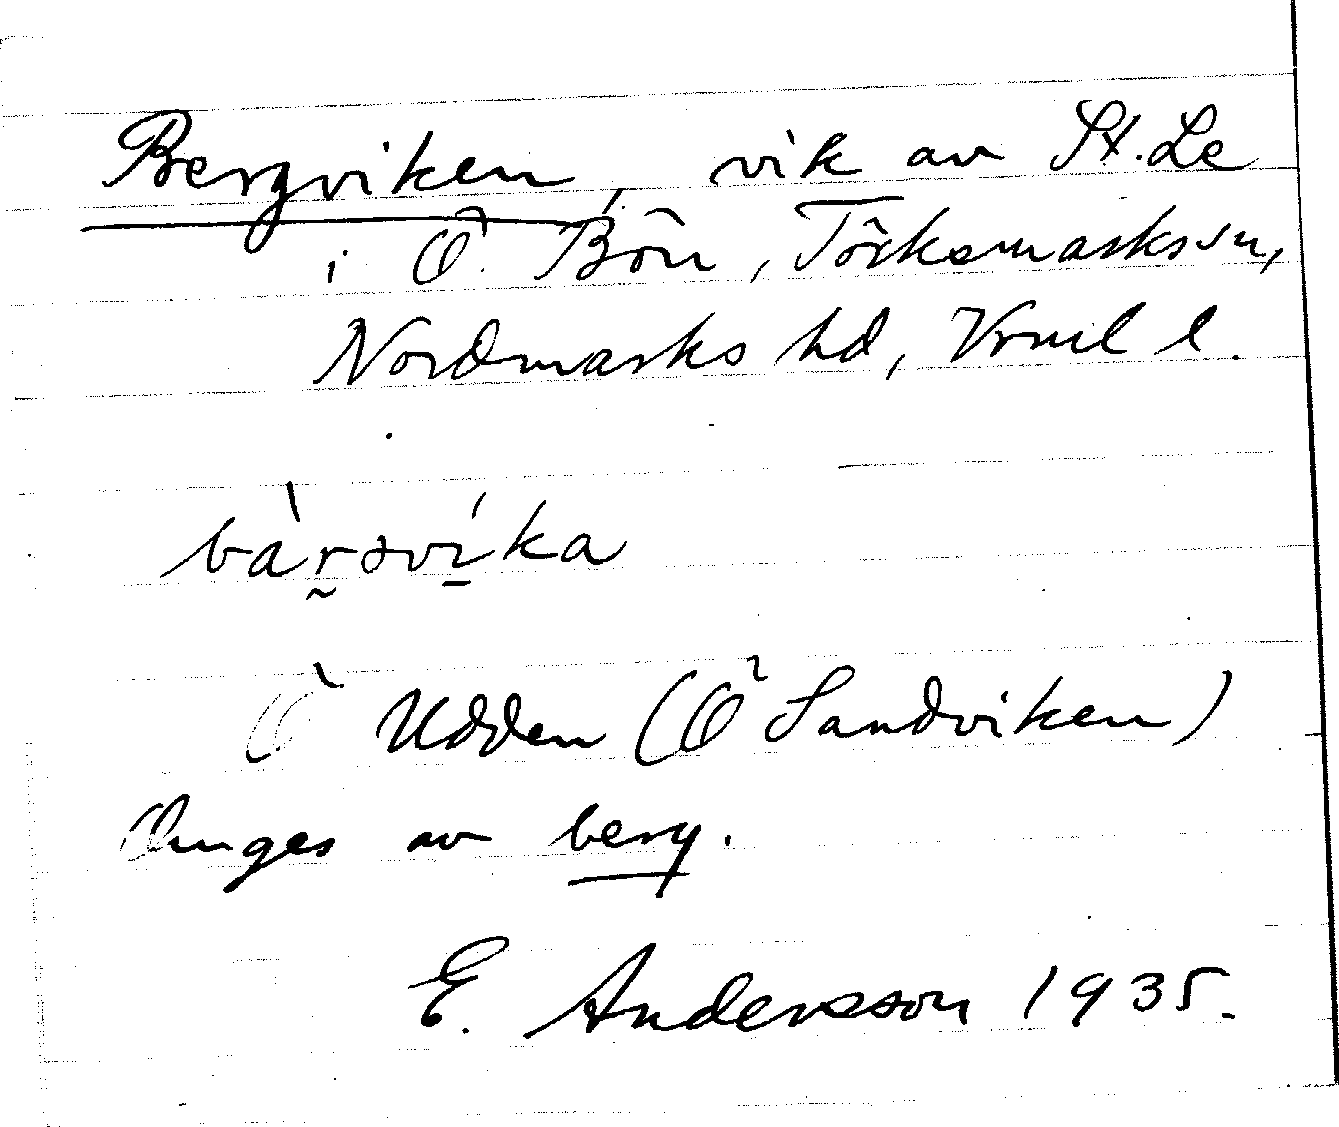 Bergviken, vik av St. Le
i Ö. Bön, Töcksmarks sn,
Nordmarks hd, Vrml l.
bàr̰sví̱ka
Ö Udden (Ö Sandviken)
Anges av berg.
E. Andersson 1935.